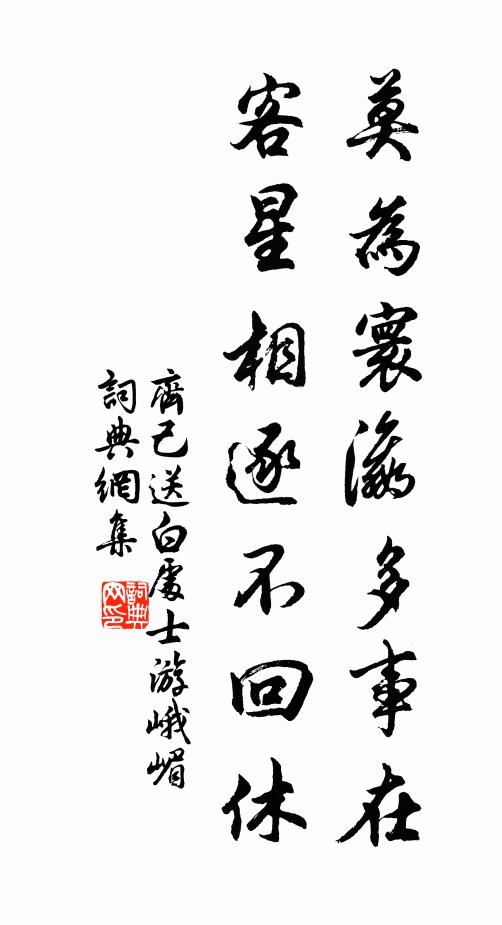 莫為寰瀛多事在
客星相逐不回休
齊己送白處士游峨嵋
詞典網集
詞典網印